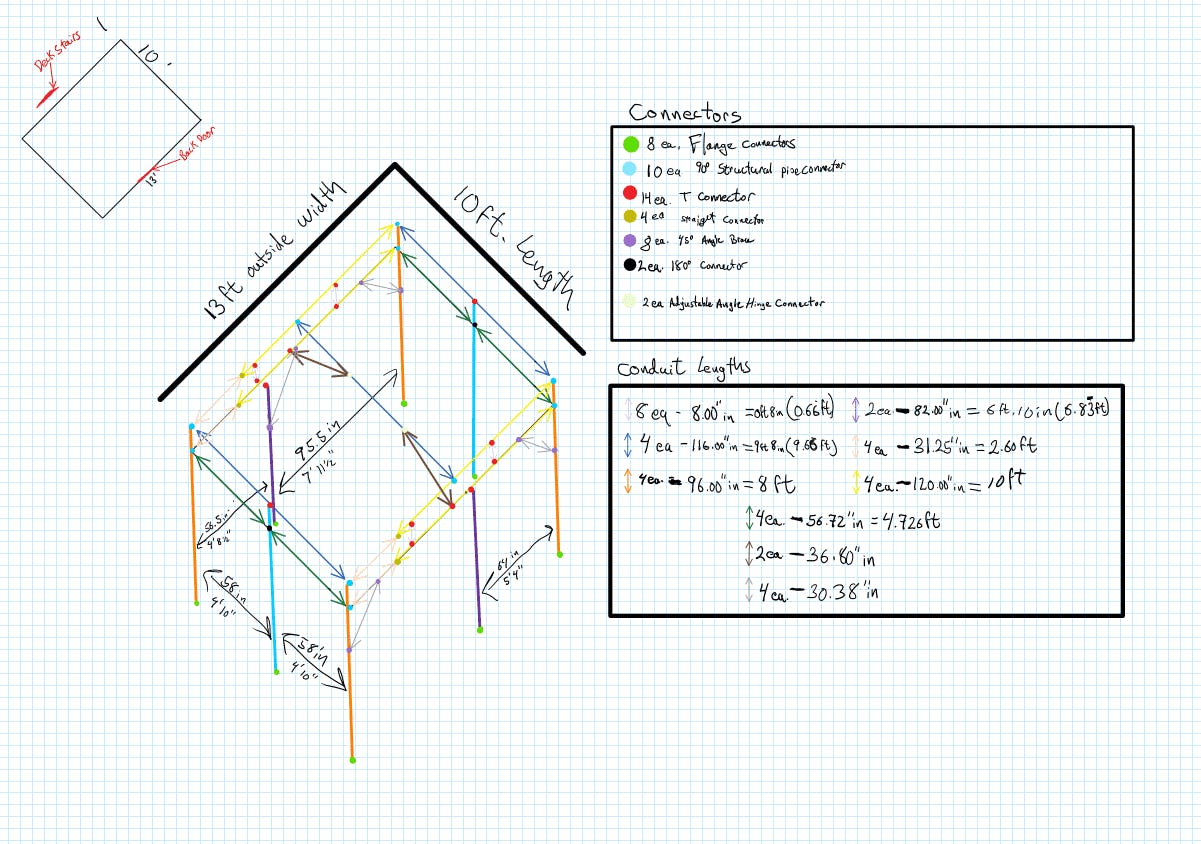 10'
Deck Stairs
Back Door
13'
13ft outside width
10ft. Length
95.5 in
7' 11½"
56.5 in
4' 8½"
58 in
4'10"
58 in
4'10"
64 in
5'4"
Connectors
8 ea. Flange Connectors
10 ea 90° Structural pipe connector
14 ea. T Connector
4 ea straight Connector
8 ea. 45° Angle Brace
2 ea. 180° Connector
2 ea Adjustable Angle Hinge Connector
Conduit Lengths
8 ea - 8.00" in = 0ft 8in (0.66ft)
2 ea. - 82.00" in = 6 ft. 10 in (6.83ft)
4 ea - 116.00" in = 9ft 8in (9.66ft)
4 ea - 31.25" in = 2.60ft
4 ea. - 96.00" in = 8 ft
4 ea. - 120.00" in = 10ft
4 ea. - 56.72" in = 4.726ft
2 ea - 36.80" in
4 ea. - 30.38" in